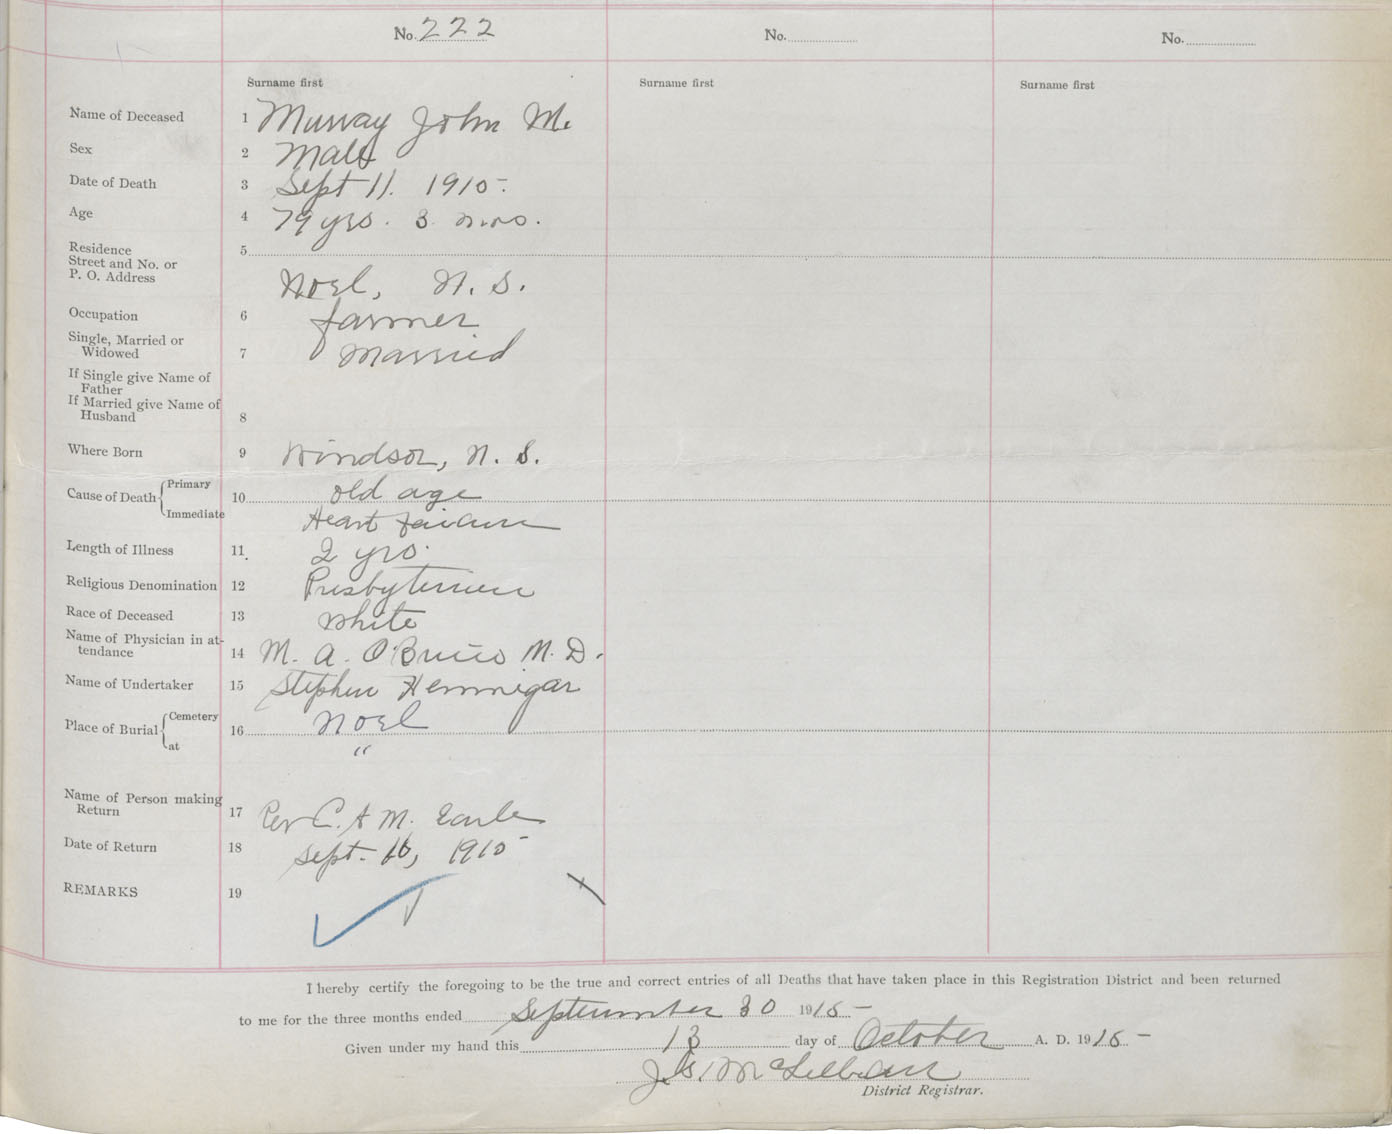 No. 222 No. No.
Surname first Surname first Surname first
Name of Deceased 1 Murray John M.
Sex 2 Male
Date of Death 3 Sept 11. 1915.
Age 4 79 yrs. 3 mos.
Residence 5
Street and No. or
P. O. Address
Noel, N. S.
Occupation 6 farmer
Single, Married or
Widowed 7 Married
If Single give Name of
Father
If Married give Name of
Husband 8
Where Born 9 Windsor, N. S.
Cause of Death Primary 10 old age
Immediate Heart failure
Length of Illness 11. 2 yrs.
Religious Denomination 12 Presbyterian
Race of Deceased 13 White
Name of Physician in at-
tendance 14 M. A. O'Brien M. D.
Name of Undertaker 15 Stephen Hennigar
Place of Burial Cemetery 16 Noel
at "
Name of Person making
Return 17 Rev C. A M. Earle
Date of Return 18 Sept. 16, 1915
REMARKS 19
I hereby certify the foregoing to be the true and correct entries of all Deaths that have taken place in this Registration District and been returned
to me for the three months ended September 30 1915
Given under my hand this 13 day of October A. D. 1915
District Registrar.